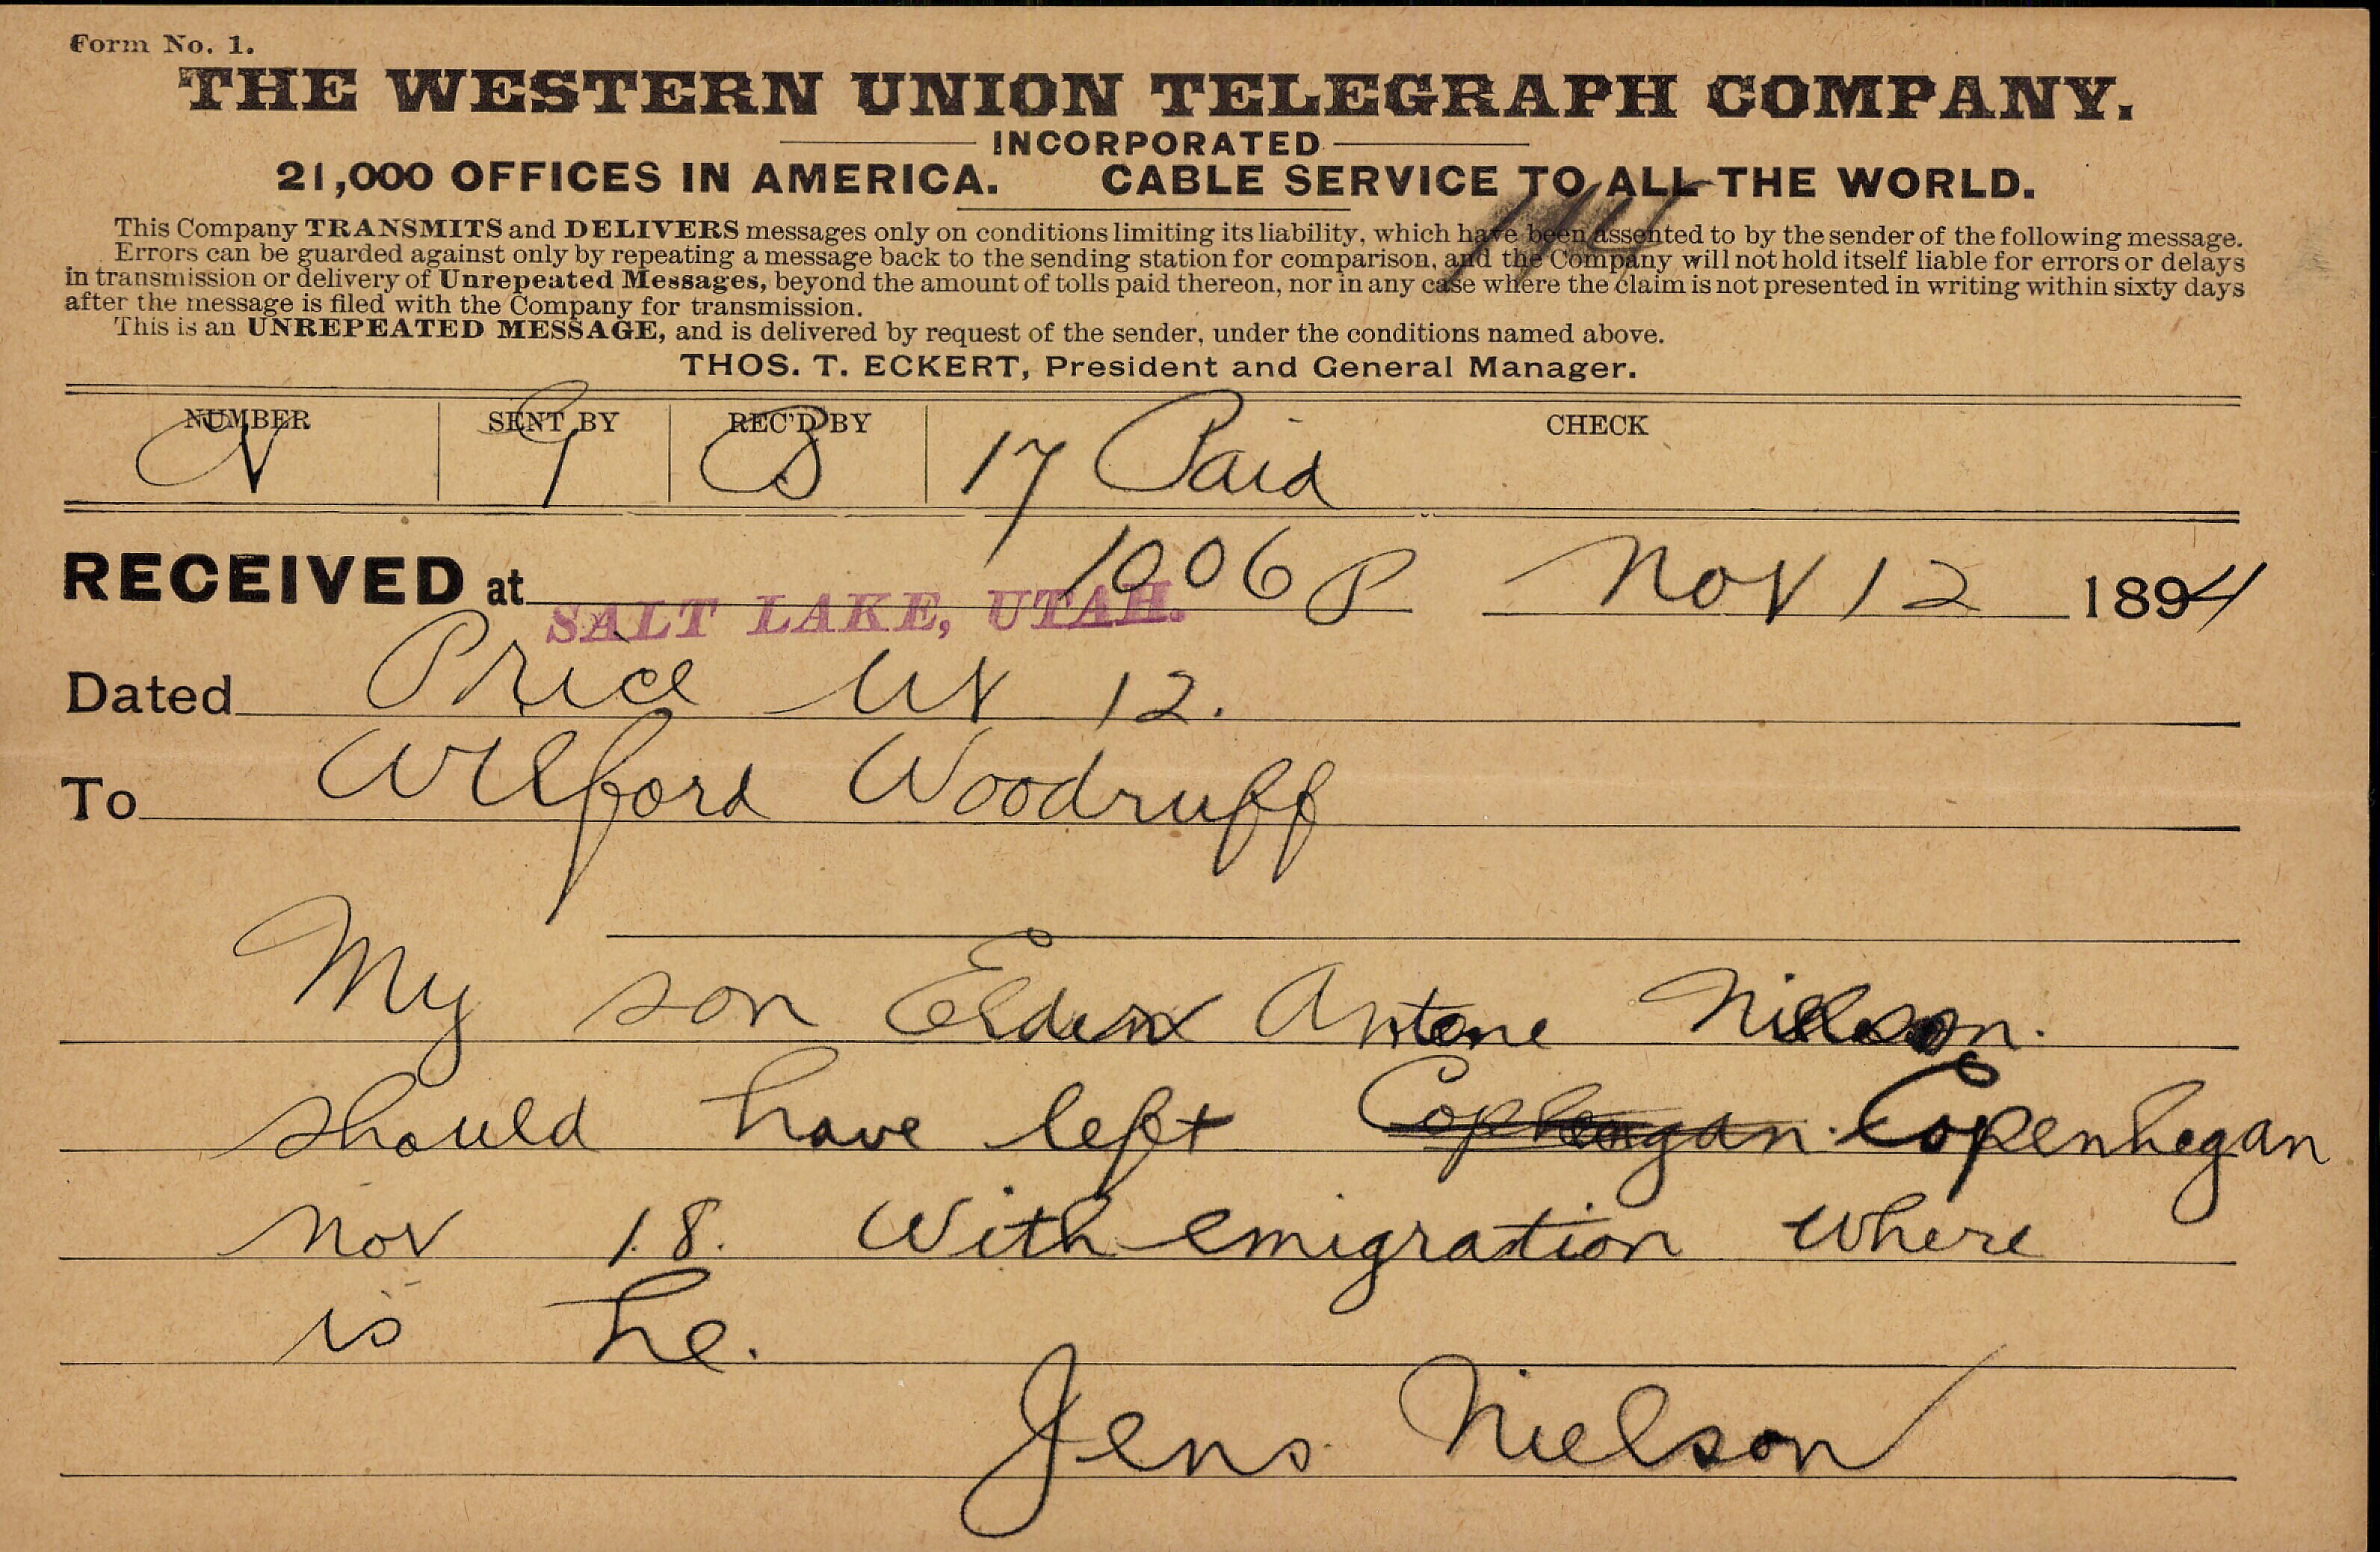 Form No. 1.
THE WESTERN UNION TELEGRAPH COMPANY.
INCORPORATED
21,000 OFFICES IN AMERICA. CABLE SERVICE TO ALL THE WORLD.
This Company TRANSMITS and DELIVERS messages only on conditions limiting its liability, which have been assented to by the sender of the following message.
Errors can be guarded against only by repeating a message back to the sending station for comparison, and the Company will not hold itself liable for errors or delays
in transmission or delivery of Unrepeated Messages, beyond the amount of tolls paid thereon, nor in any case where the claim is not presented in writing within sixty days
after the message is filed with the Company for transmission.
This is an UNREPEATED MESSAGE, and is delivered by request of the sender, under the conditions named above.
THOS. T. ECKERT, President and General Manager.
NUMBER SENT BY REC'D BY CHECK
N G B 17 Paid
RECEIVED at SALT LAKE, UTAH. 1006 P Nov 12 1894
Dated Price Ut 12.
To Wilford Woodruff
My son Elder Antone Nielson.
should have left Cophengan. Copenhegan
Nov 18. With emigration where
is he.
Jens Nielson